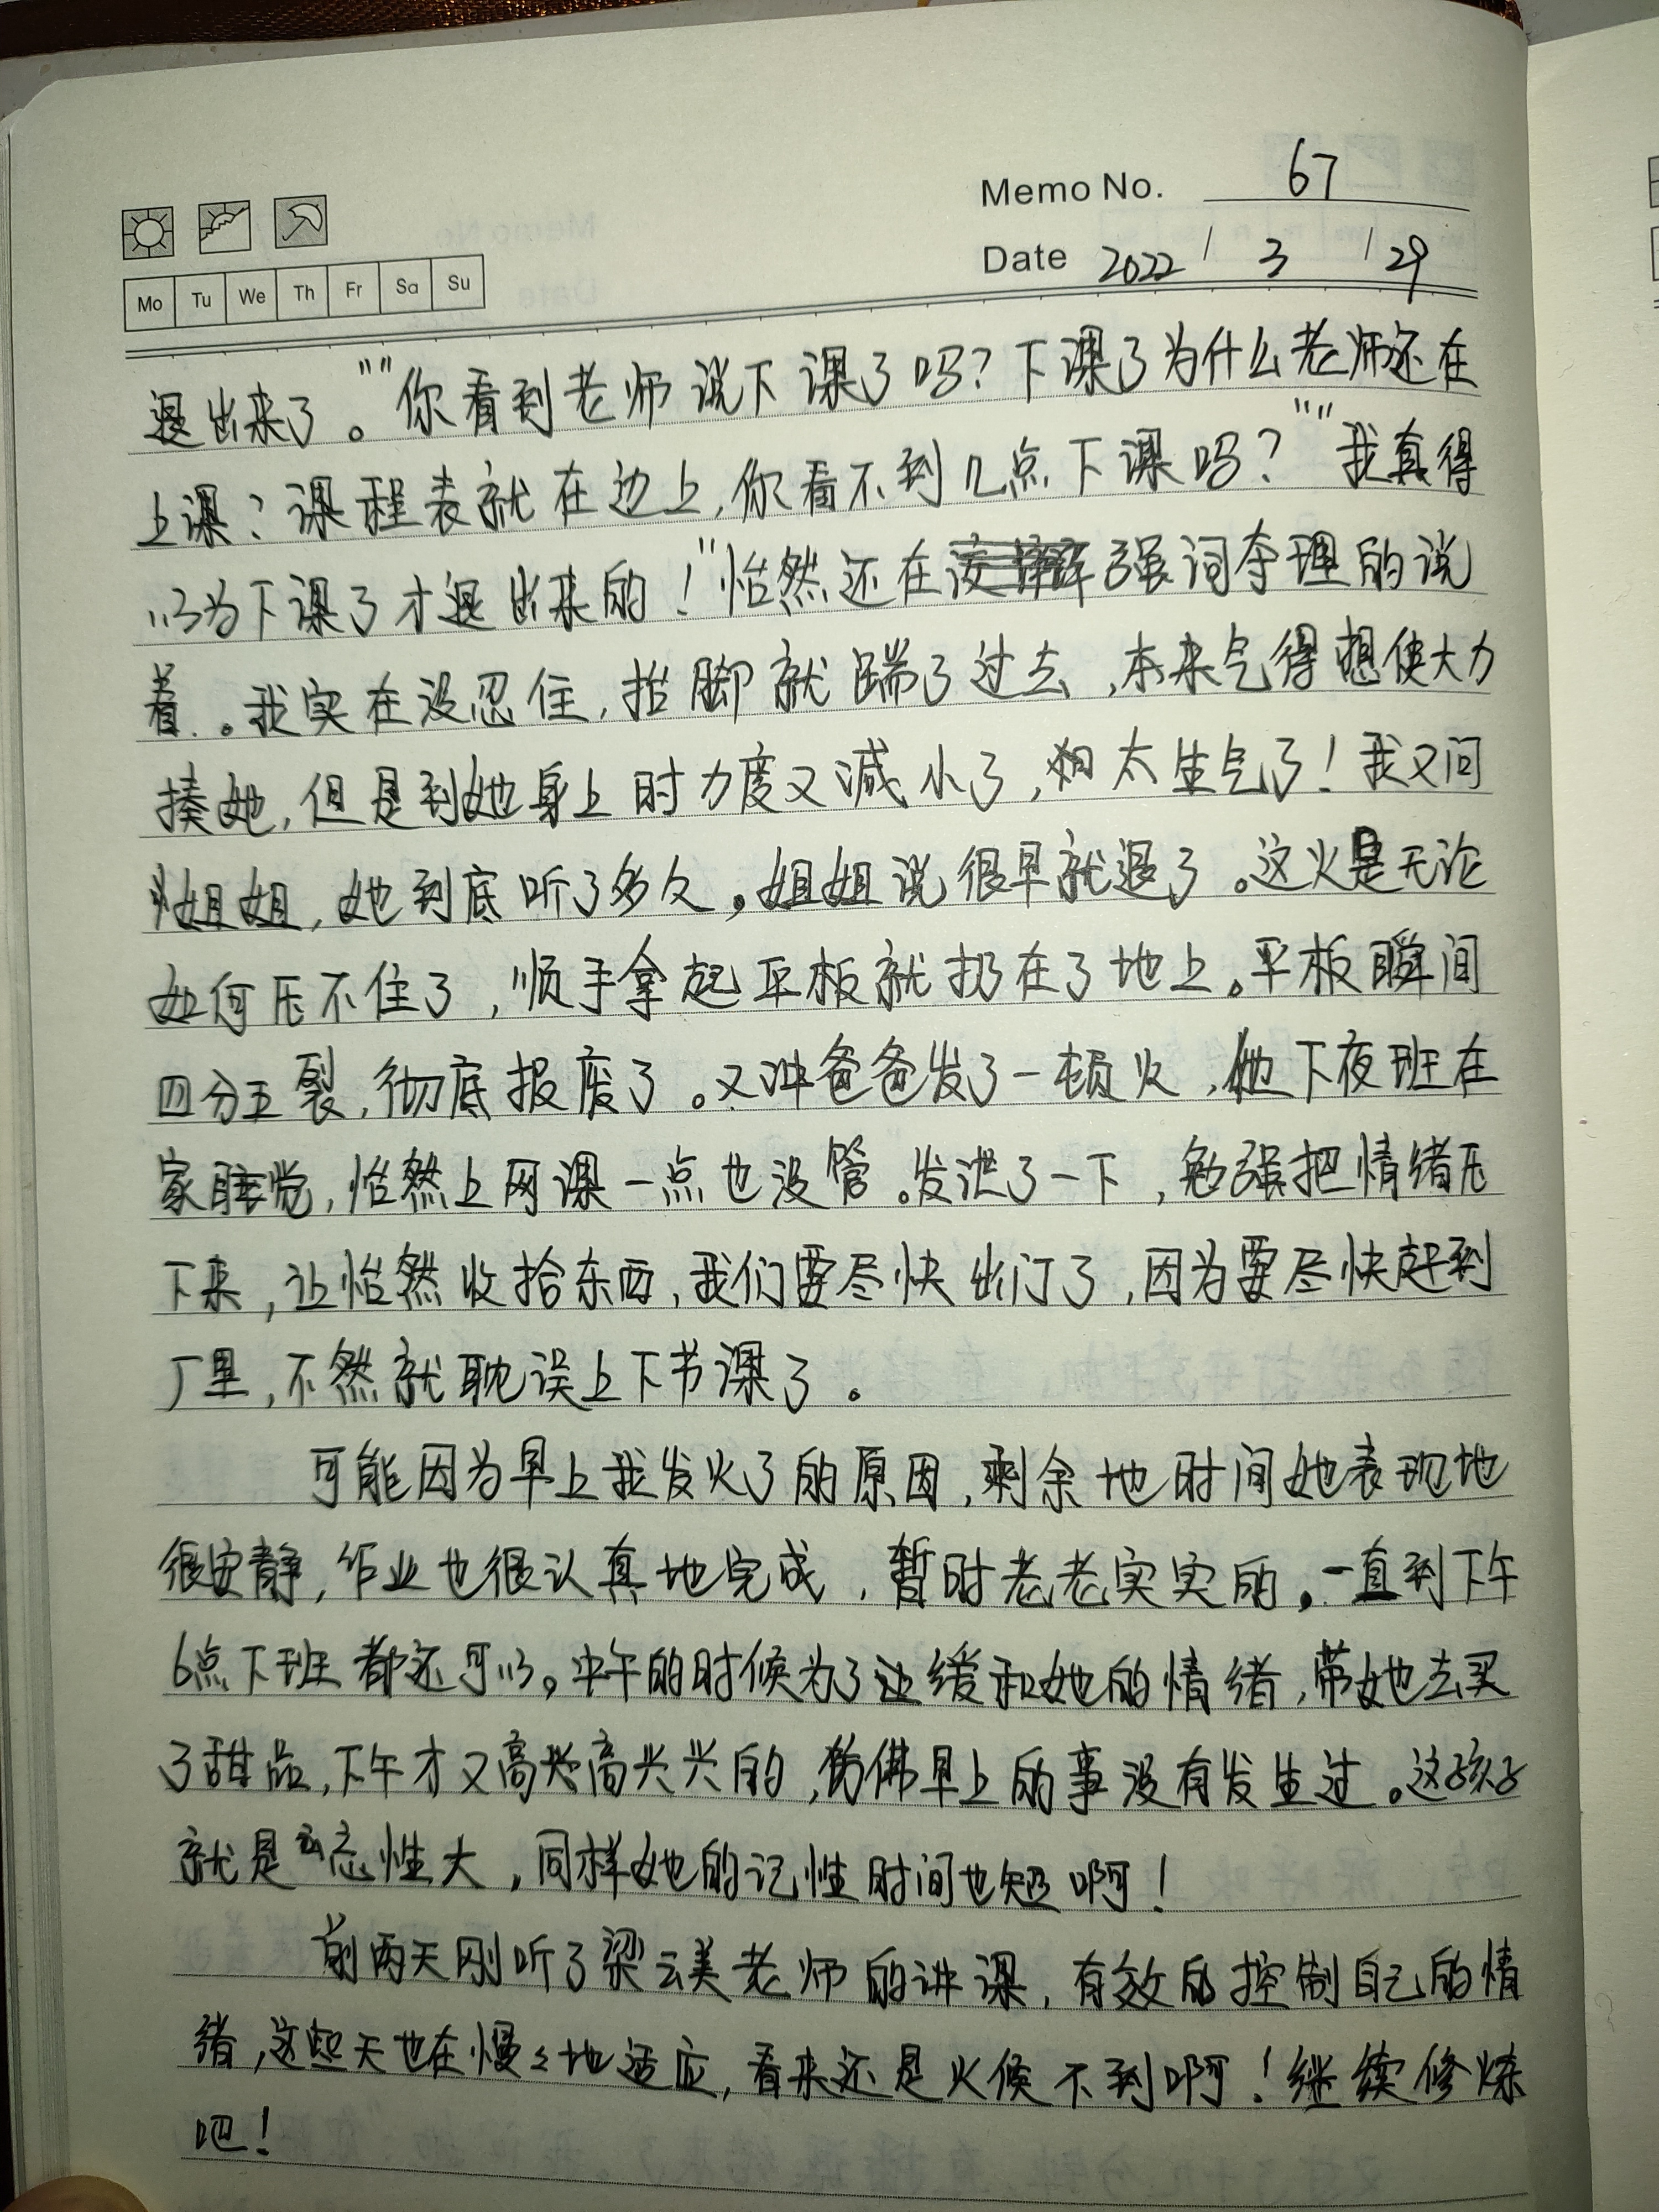 Memo No. 67
Date 2022 / 3 / 29
Mo Tu We Th Fr Sa Su
退出来了。""你看到老师说下课了吗?下课了为什么老师还在
上课?课程表就在边上,你看不到几点下课吗?""我真得
以为下课了才退出来的!"怡然还在强词夺理的说
着。我实在没忍住,抬脚就踹了过去,本来气得想使大力
揍她,但是到她身上时力度又减小了,太生气了!我又问
姐姐,她到底听了多久。姐姐说很早就退了。这火是无论
如何压不住了,顺手拿起平板就扔在了地上。平板瞬间
四分五裂,彻底报废了。又冲爸爸发了一顿火,他下夜班在
家睡觉,怡然上网课一点也没管。发泄了一下,勉强把情绪压
下来,让怡然收拾东西,我们要尽快出门了,因为要尽快赶到
厂里,不然就耽误上下节课了。
可能因为早上我发火了的原因,剩余地时间她表现地
很安静,作业也很认真地完成,暂时老老实实的。一直到下午
6点下班都还可以。中午的时候为了让缓和她的情绪,带她去买
了甜品,下午才又高兴高兴兴的,仿佛早上的事没有发生过。这孩子
就是忘性大,同样她的记性时间也短啊!
前两天刚听了梁云美老师的讲课,有效的控制自己的情
绪,这些天也在慢々地适应,看来还是火候不到啊!继续修炼
吧!